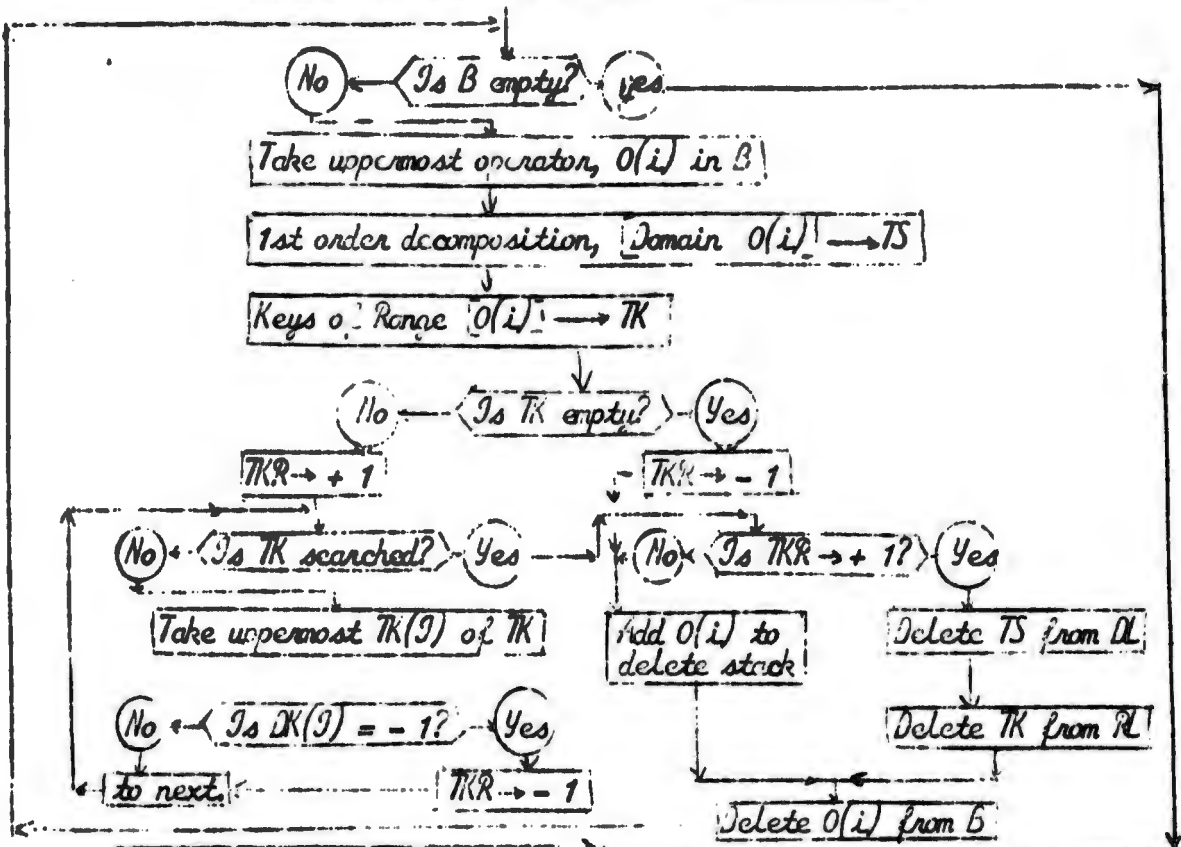 No
Is B empty?
Yes
Take uppermost operator, O(i) in B
1st order decomposition, Domain O(i) → TS
Keys of Range O(i) → TK
No
Is TK empty?
Yes
TKR → + 1
TKR → - 1
No
Is TK searched?
Yes
No
Is TKR → + 1?
Yes
Take uppermost TK(I) of TK
Add O(i) to
delete stack
Delete TS from DL
No
Is DK(I) = - 1?
Yes
Delete TK from RL
to next.
TKR → - 1
Delete O(i) from B